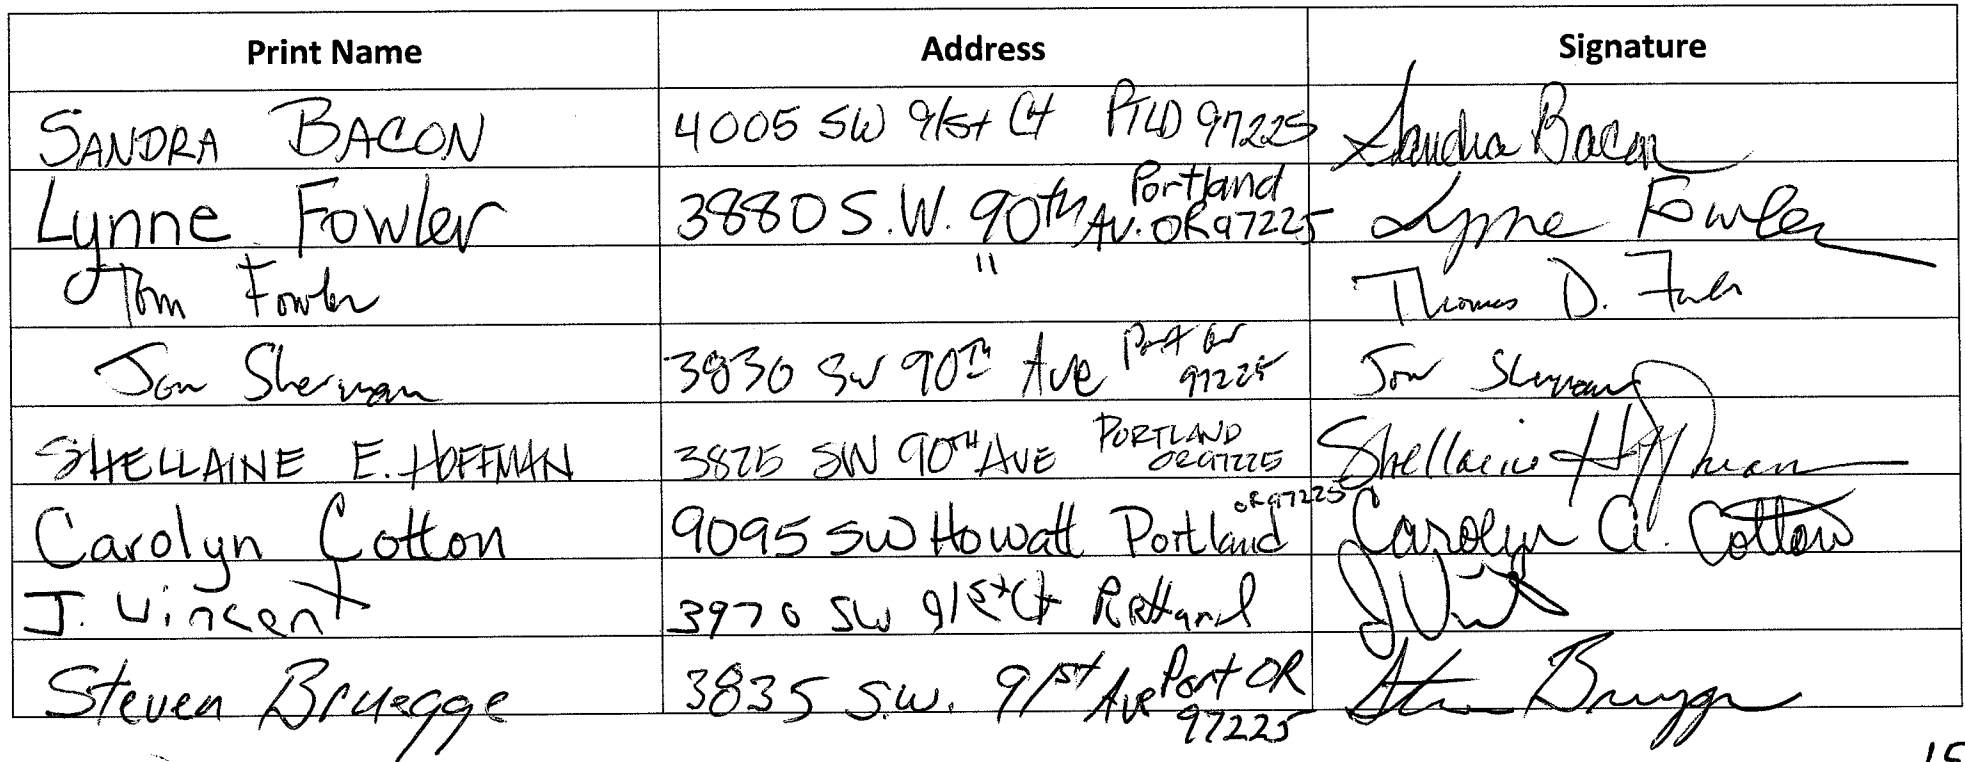 Print Name Address Signature
SANDRA BACON 4005 SW 91st Ct PTLD 97225 Sandra Bacon
Lynne Fowler 3880 S.W. 90th Av. Portland OR 97225 Lynne Fowler
Tom Fowler " Thomas D. Fowler
Jon Sherman 3830 SW 90TH Ave Port Or 97225 Jon Sherman
SHELLAINE E. HOFFMAN 3825 SW 90TH AVE PORTLAND OR 97225 Shellaine Hoffman
Carolyn Cotton 9095 SW Howatt Portland OR 97225 Carolyn A. Cotton
J. Vincent 3970 SW 91st Ct Portland J Vincent
Steven Bruegge 3835 S.W. 91st Ave Port OR 97225 Steven Bruegge